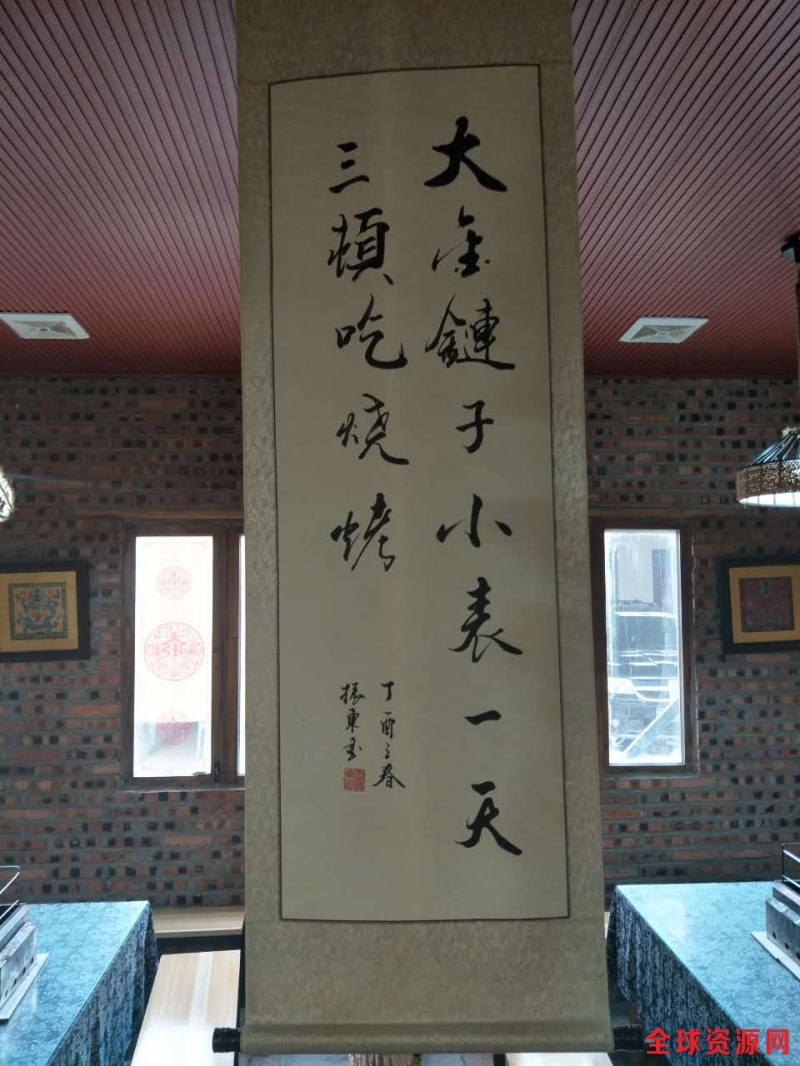 大金鏈子小表一天
三頓吃烧烤
丁酉之春
振東书
全球资源网